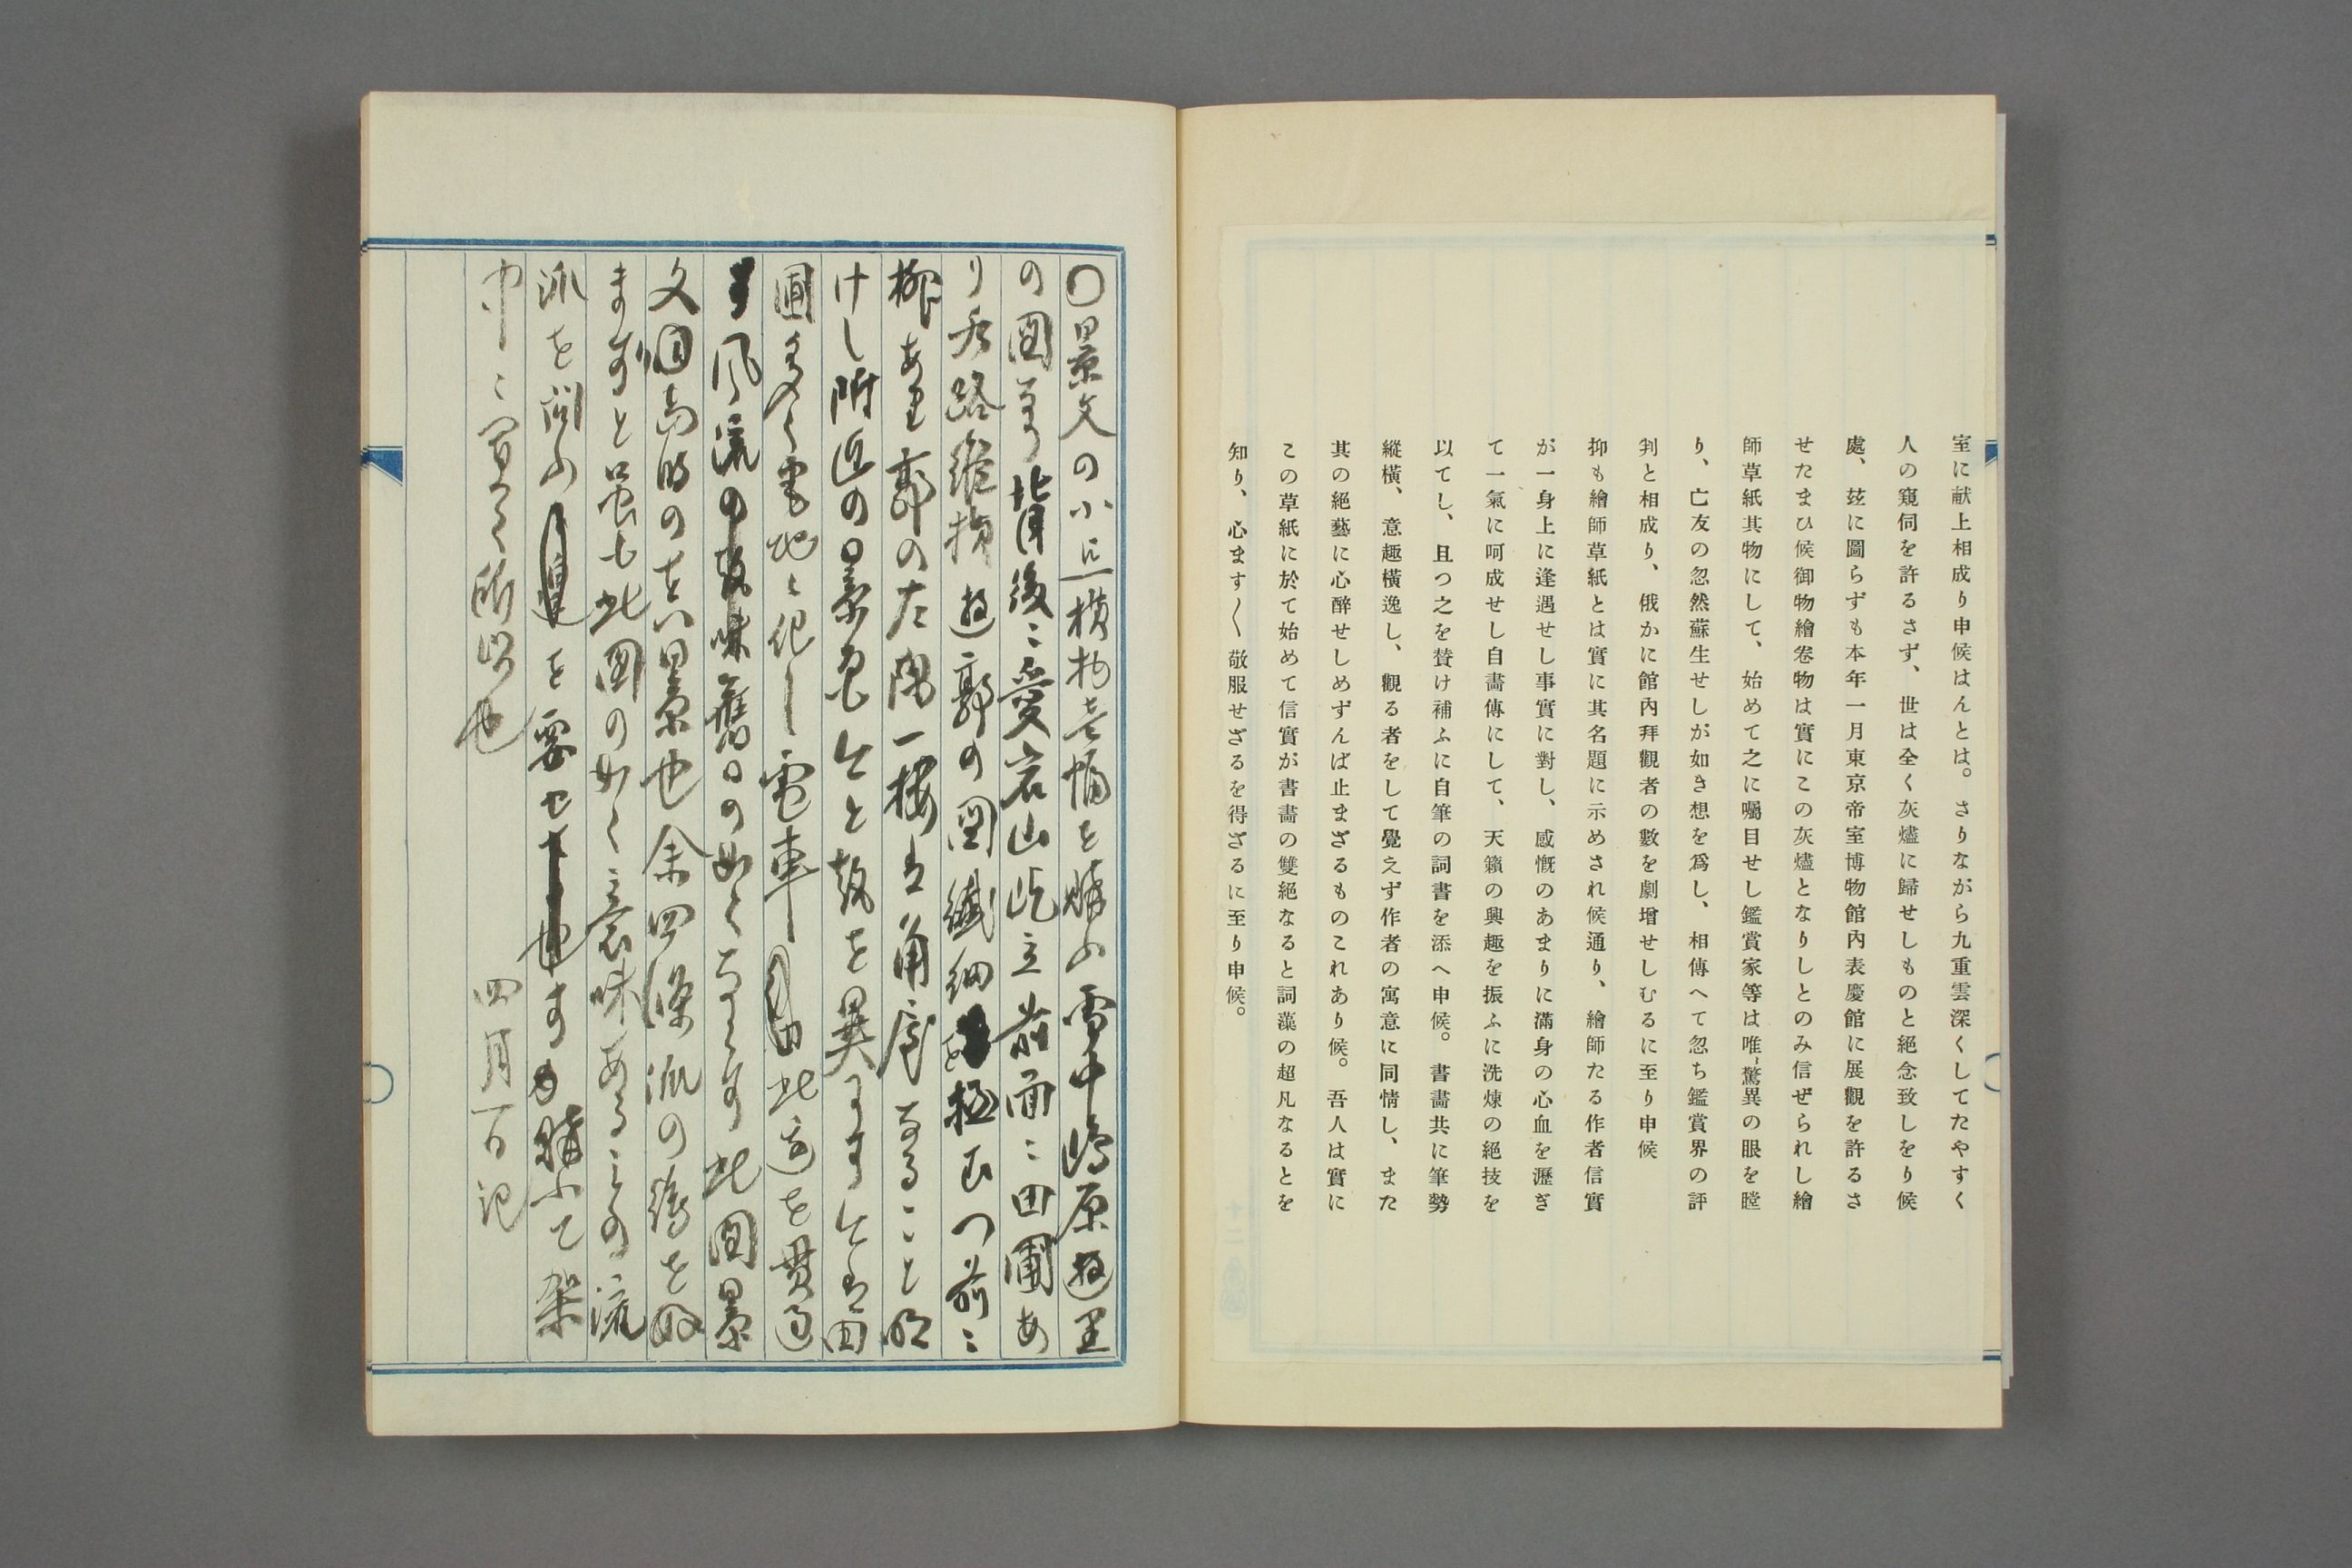 室に献上相成り申候はんとは。さりながら九重雲深くしてたやすく
人の窺伺を許るさず、世は全く灰燼に歸せしものと絕念致しをり候
處、玆に圖らずも本年一月東京帝室博物館內表慶館に展觀を許るさ
せたまひ候御物繪卷物は實にこの灰燼となりしとのみ信ぜられし繪
師草紙其物にして、始めて之に囑目せし鑑賞家等は唯〻驚異の眼を瞠
り、亡友の忽然蘇生せしが如き想を爲し、相傳へて忽ち鑑賞界の評
判と相成り、俄かに館內拜觀者の數を劇增せしむるに至り申候
抑も繪師草紙とは實に其名題に示めされ候通り、繪師たる作者信實
が一身上に逢遇せし事實に對し、感慨のあまりに滿身の心血を瀝ぎ
て一氣に呵成せし自畵傳にして、天籟の興趣を振ふに洗煉の絕技を
以てし、且つ之を賛け補ふに自筆の詞書を添へ申候。書畵共に筆勢
縱橫、意趣橫逸し、觀る者をして覺えず作者の寓意に同情し、また
其の絕藝に心醉せしめずんば止まざるものこれあり候。吾人は實に
この草紙に於て始めて信實が書畵の雙絕なると詞藻の超凡なるとを
知り、心ます〱敬服せざるを得ざるに至り申候。
〇景文の小点横物壱幅を購ふ雪中嶋原遊里
の図なり背後ニ愛宕山屹立前面ニ田圃あ
り 路 遊廓の図繊細を極む门前ニ
柳あり廓の左隅一楼は角屋なること明
けし附近の景色今と趣を異にす今は田
圃多く宅地と化し電車 此辺を貫通
す風流の趣味舊日の如くならず此図景
文 当時の真景也余四條派の絵を好
まずと雖も此図の如く意味あるもの流
派を問ふ を要せず 購ふて架
中ニ 所以也 四月一日記